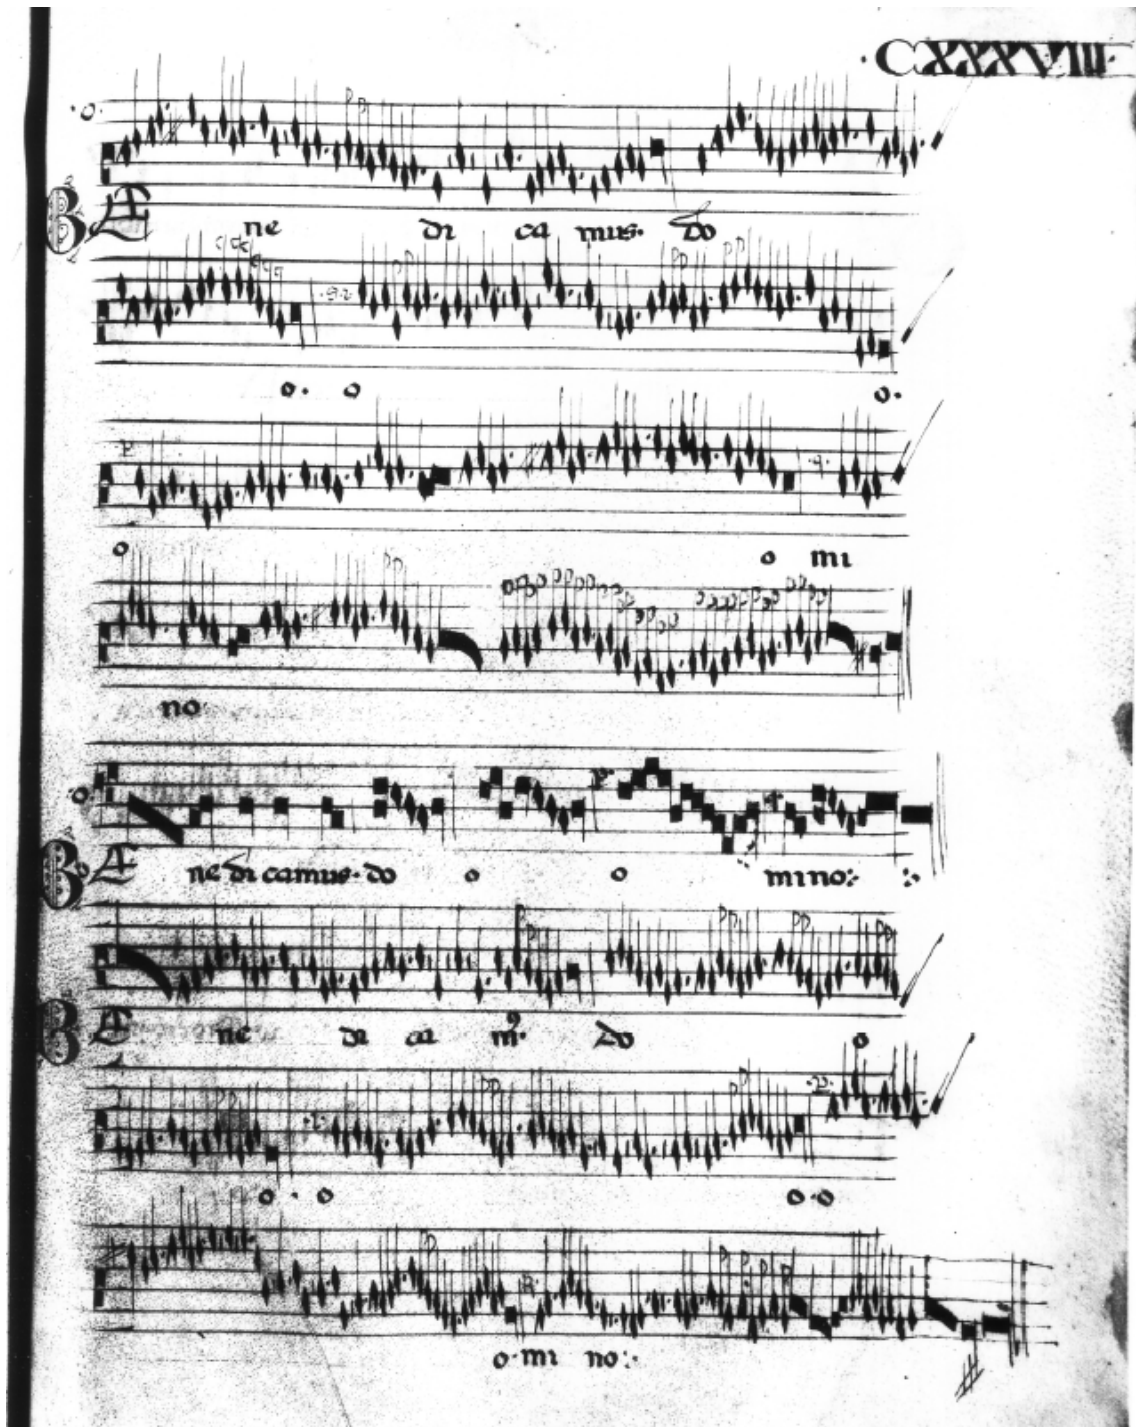 ·CXXXVIII·
BE ne di ca mus· do
o· o o·
o mi
no·
BE ne di camus· do o o mino:·
BE ne di ca m9· Do o
o · o o·o
o·mi no:·